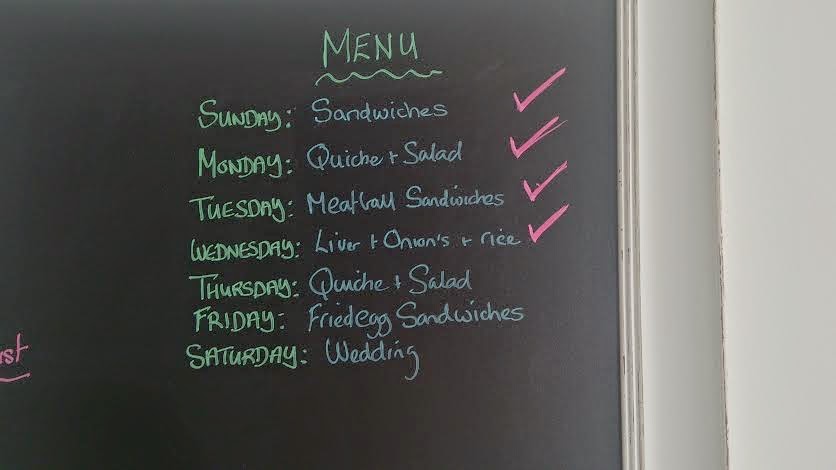 MENU
SUNDAY: Sandwiches
MONDAY: Quiche + Salad
TUESDAY: Meatball Sandwiches
WEDNESDAY: Liver + Onion's + rice
THURSDAY: Quiche + Salad
FRIDAY: Friedegg Sandwiches
SATURDAY: Wedding